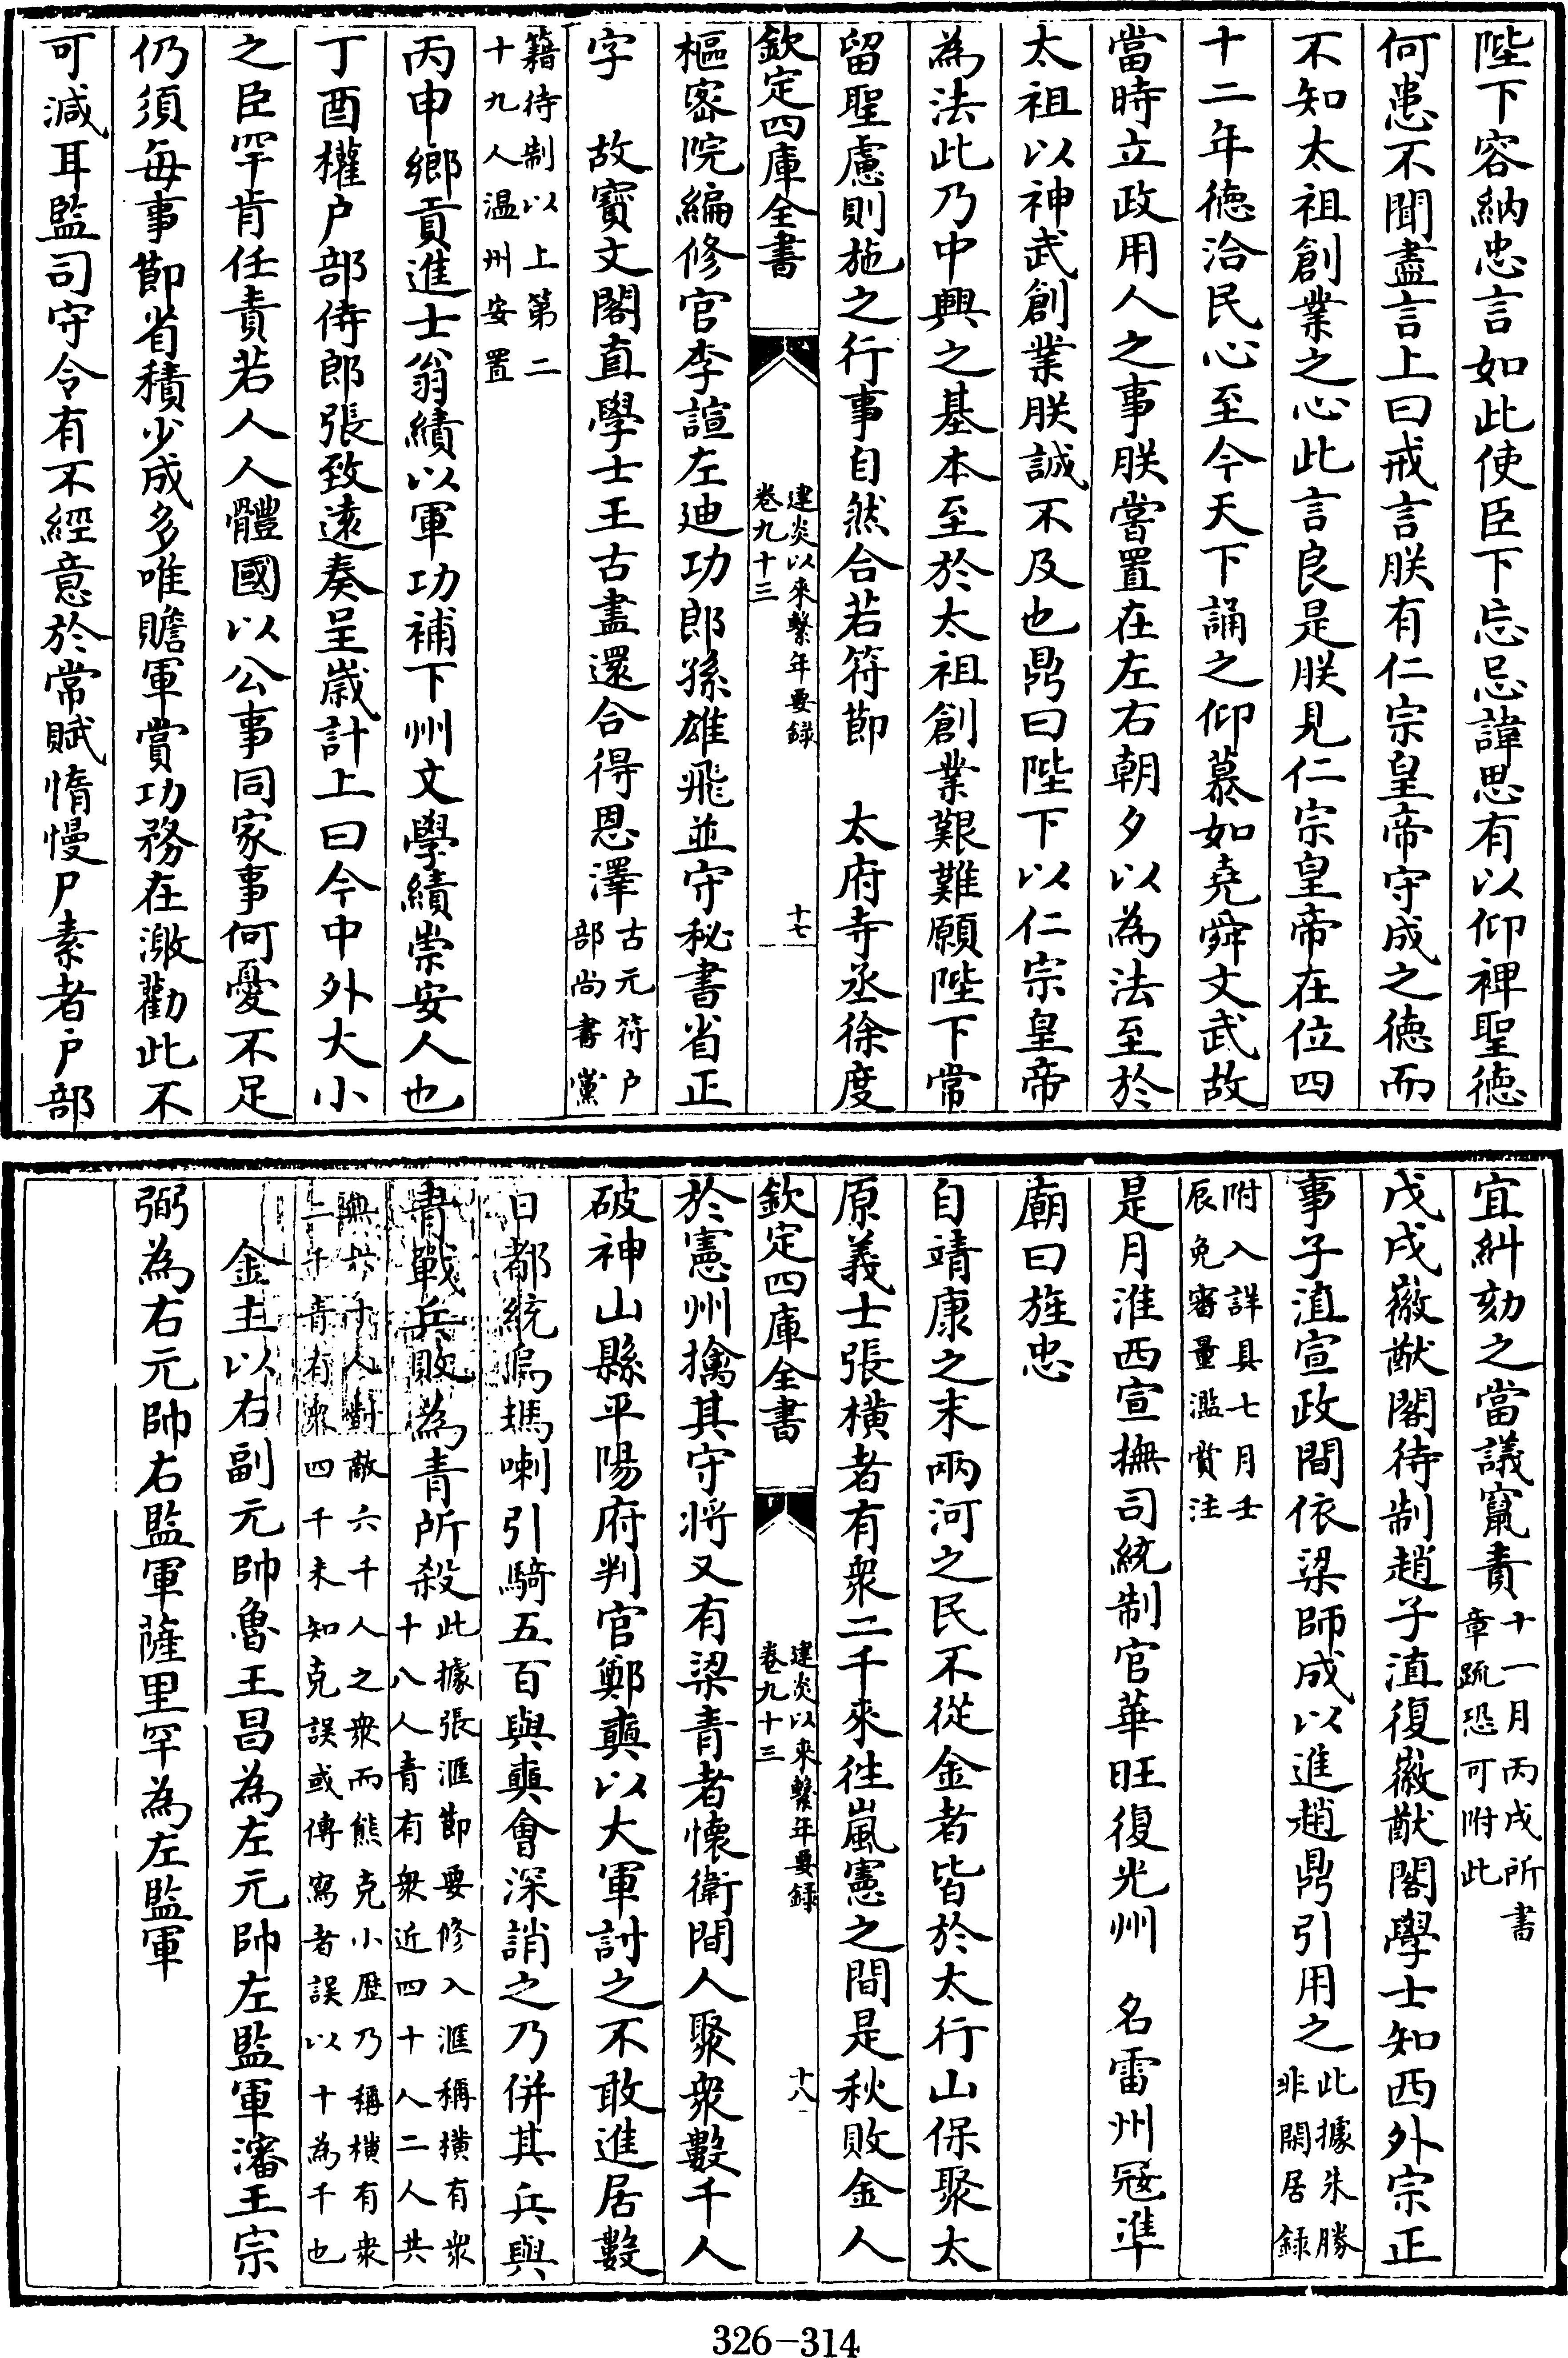 陛下容納忠言如此使臣下忘忌諱思有以仰裨聖徳
何患不聞盡言上曰戒言朕有仁宗皇帝守成之徳而
不知太祖創業之心此言良是朕見仁宗皇帝在位四
十二年徳洽民心至今天下誦之仰慕如堯舜文武故
當時立政用人之事朕嘗置在左右朝夕以為法至於
太祖以神武創業朕誠不及也鼎曰陛下以仁宗皇帝
為法此乃中興之基本至於太祖創業艱難願陛下常
留聖慮則施之行事自然合若符節　太府寺丞徐度
欽定四庫全書
建炎以來繫年要録
卷九十三
十七
樞宻院編修官李誼左廸功郎孫雄飛並守秘書省正
字　故寳文閣直學士王古盡還合得恩澤古元符户
部尚書黨
籍待制以上第二
十九人温州安置
丙申鄉貢進士翁績以軍功補下州文學績崇安人也
丁酉權户部侍郎張致遠奏呈歲計上曰今中外大小
之臣罕肯任責若人人體國以公事同家事何憂不足
仍須每事節省積少成多唯贍軍賞功務在激勸此不
可減耳監司守令有不經意於常賦惰慢尸素者户部
宜糾劾之當議竄責十一月丙戌所書
章疏恐可附此
戊戌徽猷閣待制趙子㴶復徽猷閣學士知西外宗正
事子㴶宣政間依梁師成以進趙鼎引用之此據朱勝
非閑居録
附入詳具七月壬
辰免審量濫賞注
是月淮西宣撫司統制官華旺復光州　名雷州冦準
廟曰旌忠
自靖康之末兩河之民不從金者皆於太行山保聚太
原義士張横者有衆二千來徃嵐憲之間是秋敗金人
欽定四庫全書
建炎以來繫年要録
卷九十三
十八
於憲州擒其守将又有梁青者懷衛間人聚衆數千人
破神山縣平陽府判官鄭奭以大軍討之不敢進居數
日都統烏瑪喇引騎五百與奭會深誚之乃併其兵與
青戰兵敗為青所殺此據張滙節要修入滙稱横有衆
十八人青有衆近四十人二人共
無六千人對敵六千人之衆而熊克小歴乃稱横有衆
二千青有衆四千未知克誤或傳寫者誤以十為千也
金主以右副元帥魯王昌為左元帥左監軍瀋王宗
弼為右元帥右監軍薩里罕為左監軍
326-314